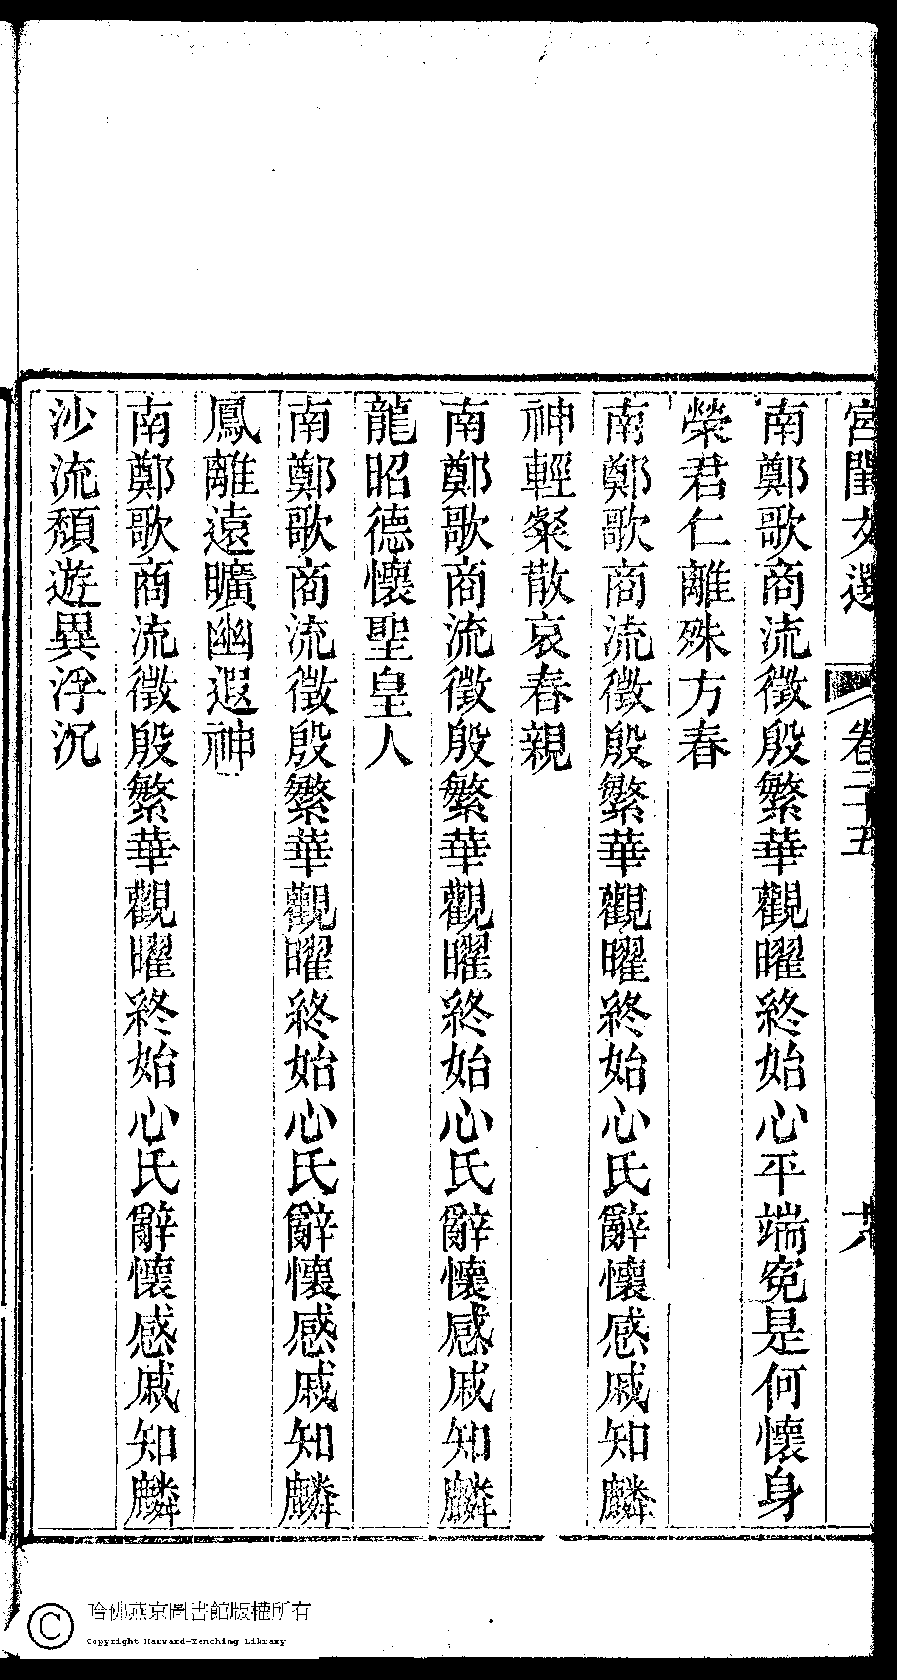 宮閨文選
卷二十五
南鄭歌商流徵殷繁華觀曜終始心平端寃是何懷身
榮君仁離殊方春
南鄭歌商流徵殷繁華觀曜終始心氏辭懷感戚知麟
神輕粲散哀春親
南鄭歌商流徵殷繁華觀曜終始心氏辭懷感戚知麟
龍昭德懷聖皇人
南鄭歌商流徵殷繁華觀曜終始心氏辭懷感戚知麟
鳳離遠曠幽遐神
南鄭歌商流徵殷繁華觀曜終始心氏辭懷感戚知麟
沙流頹遊異浮沉
哈佛燕京圖書館版權所有
Copyright Harvard-Yenching Library